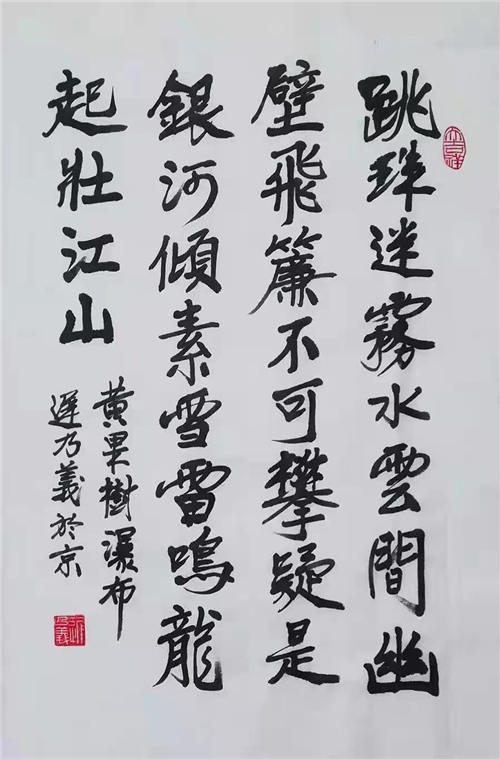 跳珠迷霧水雲間幽
壁飛簾不可攀疑是
銀河傾素雪雷鳴龍
起壯江山
黄果樹瀑布
遲乃義於京